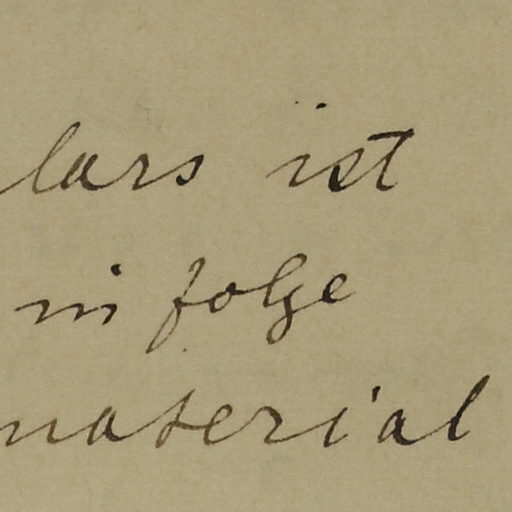 lars ist
in folge
material